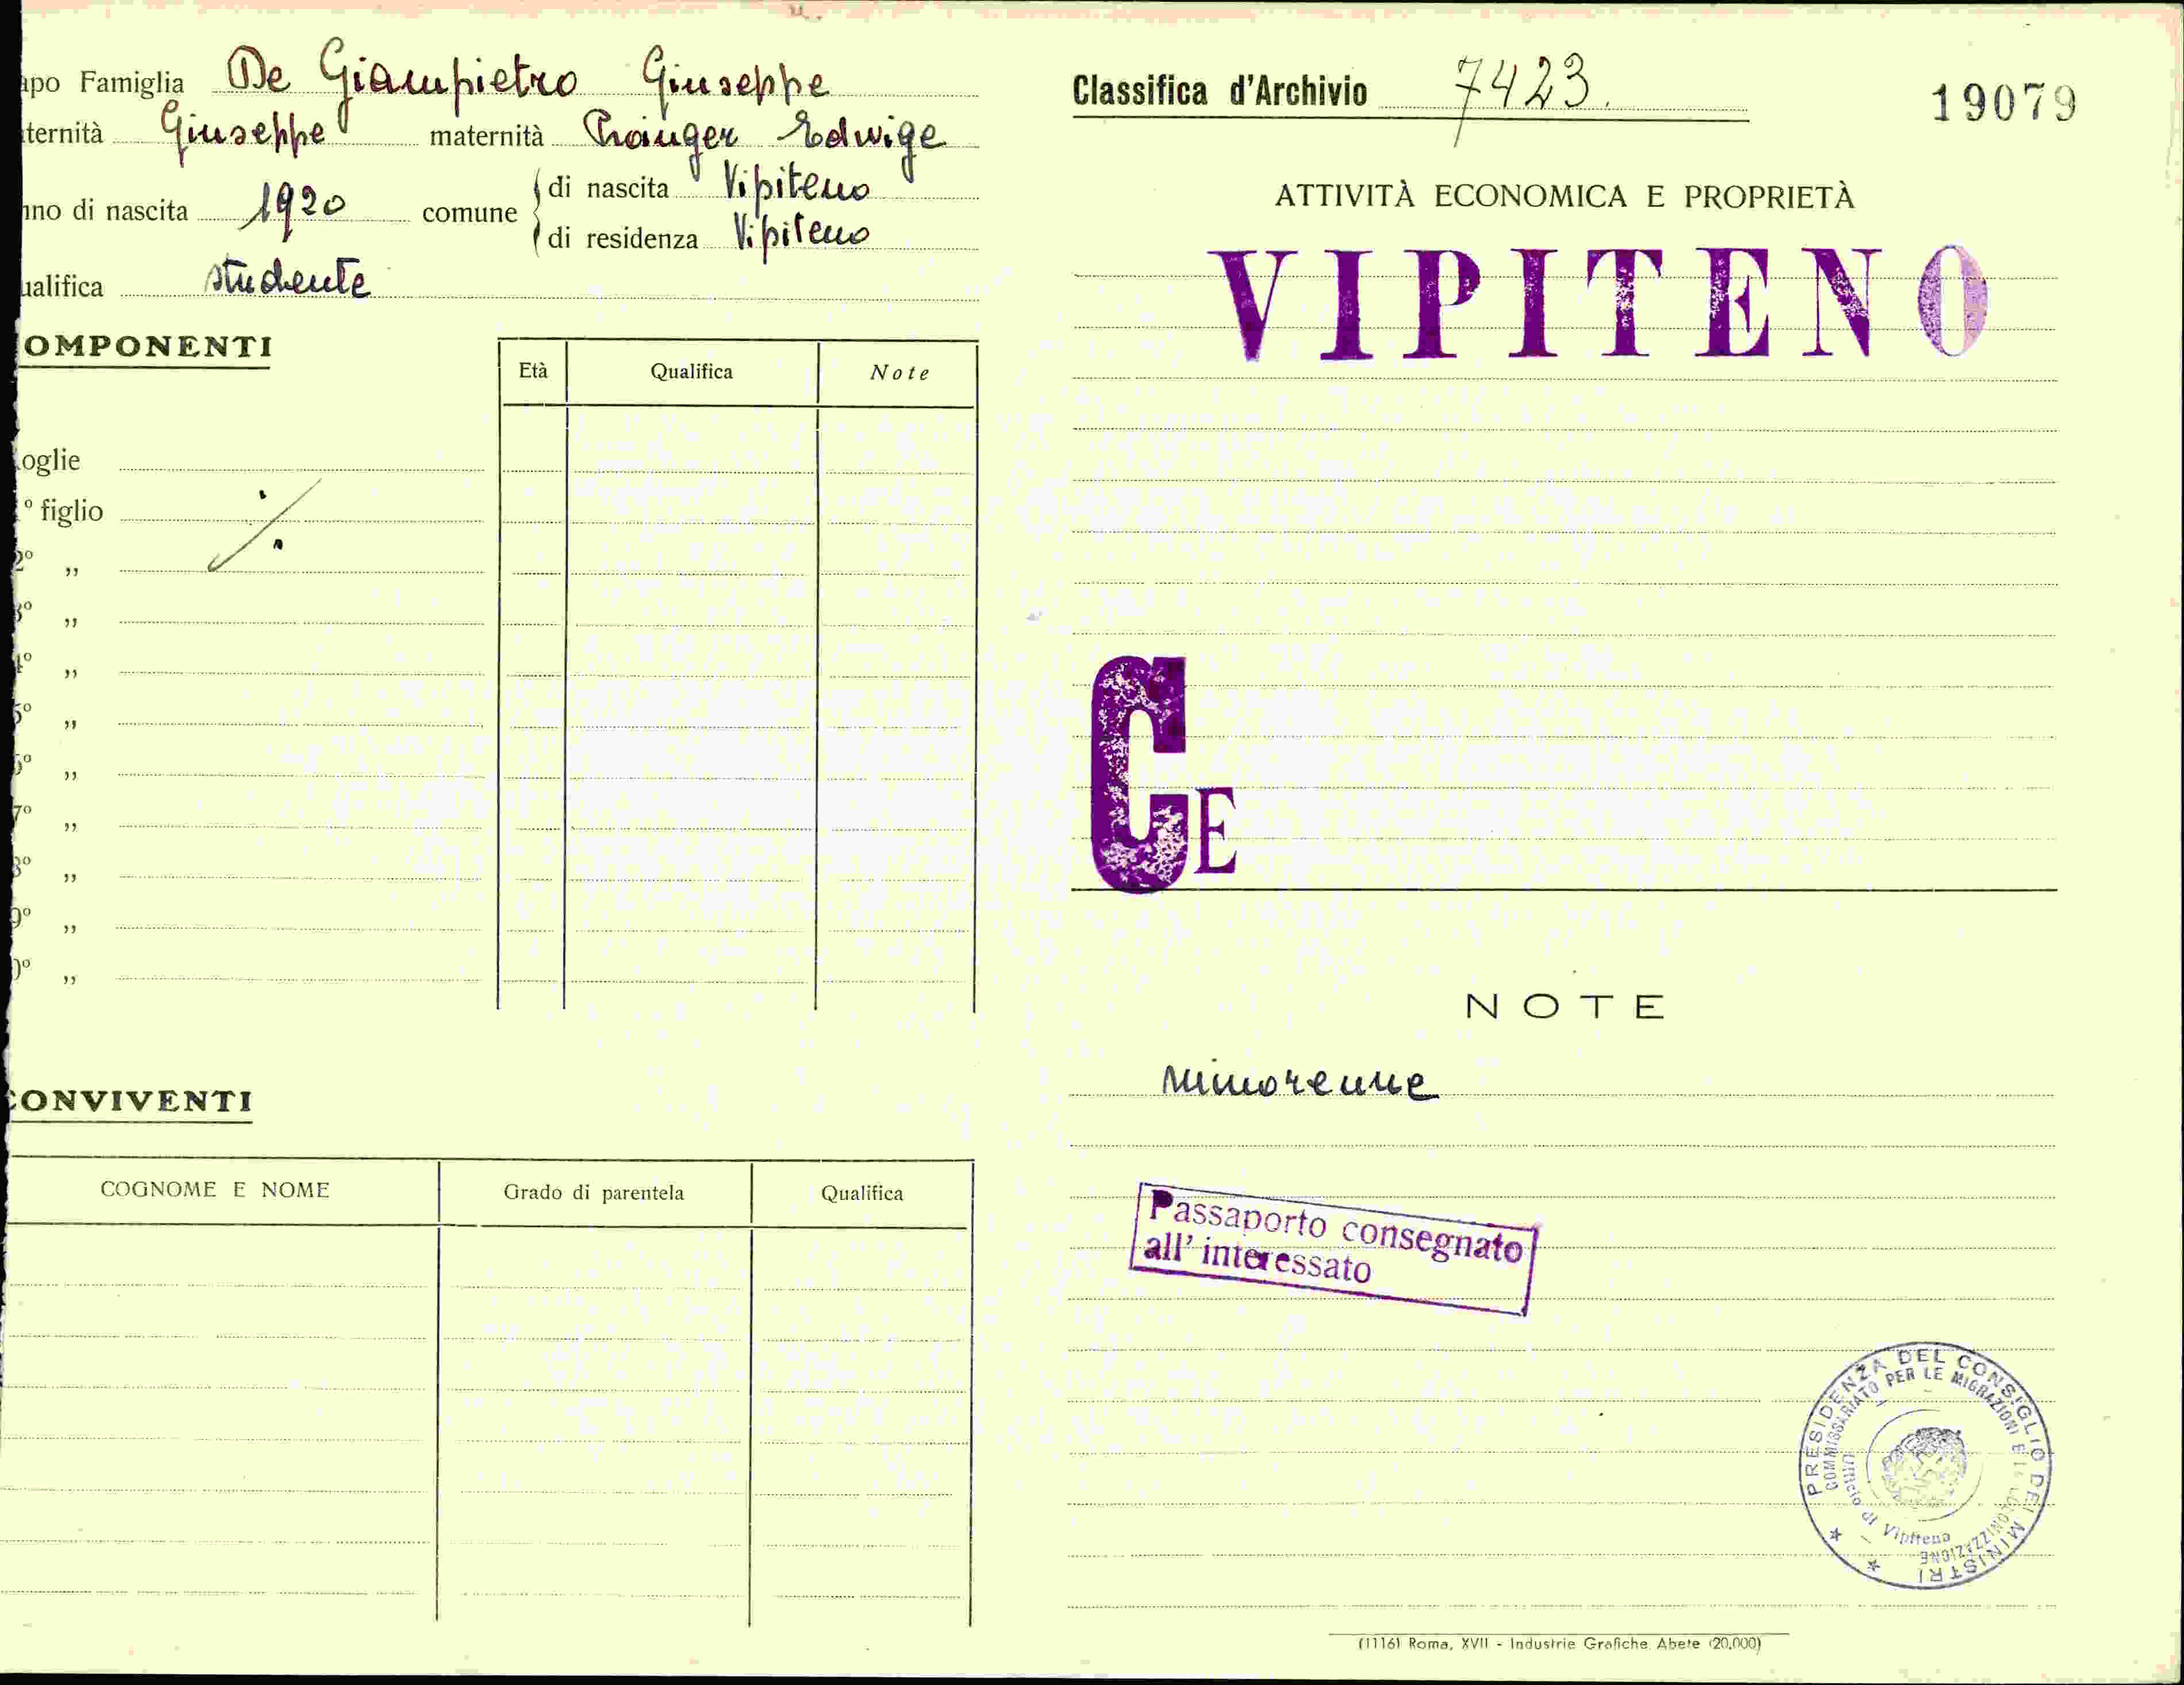 apo Famiglia De Giampietro Giuseppe
ternità Giuseppe maternità Edwige
nno di nascita 1920 comune
di nascita Vipiteno
di residenza Vipiteno
ualifica studente
OMPONENTI
Età Qualifica Note
oglie
° figlio
2° „
3° „
4° „
5° „
6° „
7° „
8° „
9° „
0° „
CONVIVENTI
COGNOME E NOME Grado di parentela Qualifica
Classifica d'Archivio 7423.
19079
ATTIVITÀ ECONOMICA E PROPRIETÀ
VIPITENO
CE
NOTE
minorenne
Passaporto consegnato
all' interessato
PRESIDENZA DEL CONSIGLIO DEI MINISTRI
COMMISSARIATO PER LE MIGRAZIONI E LA COLONIZZAZIONE
Ufficio di Vipiteno
(1116) Roma, XVII - Industrie Grafiche Abete (20.000)